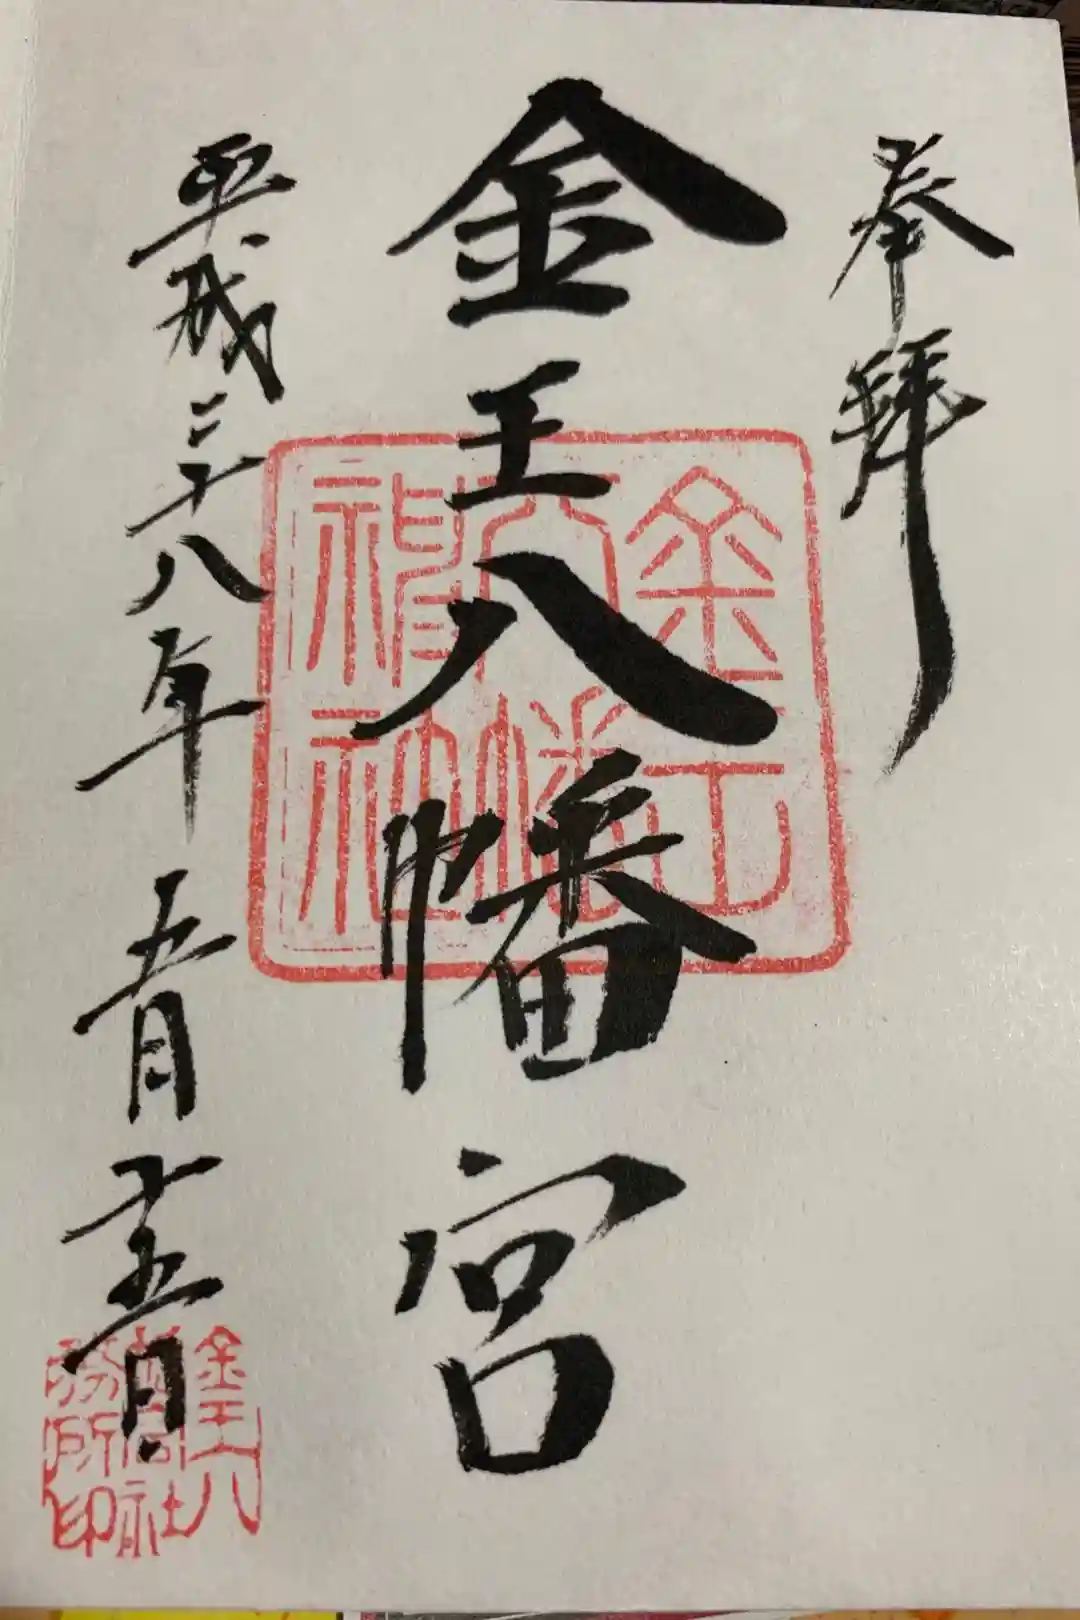 奉拝
金王八幡宮
平成二十八年五月十五日
金王
八幡
神社
金王八
幡宮社
務所印